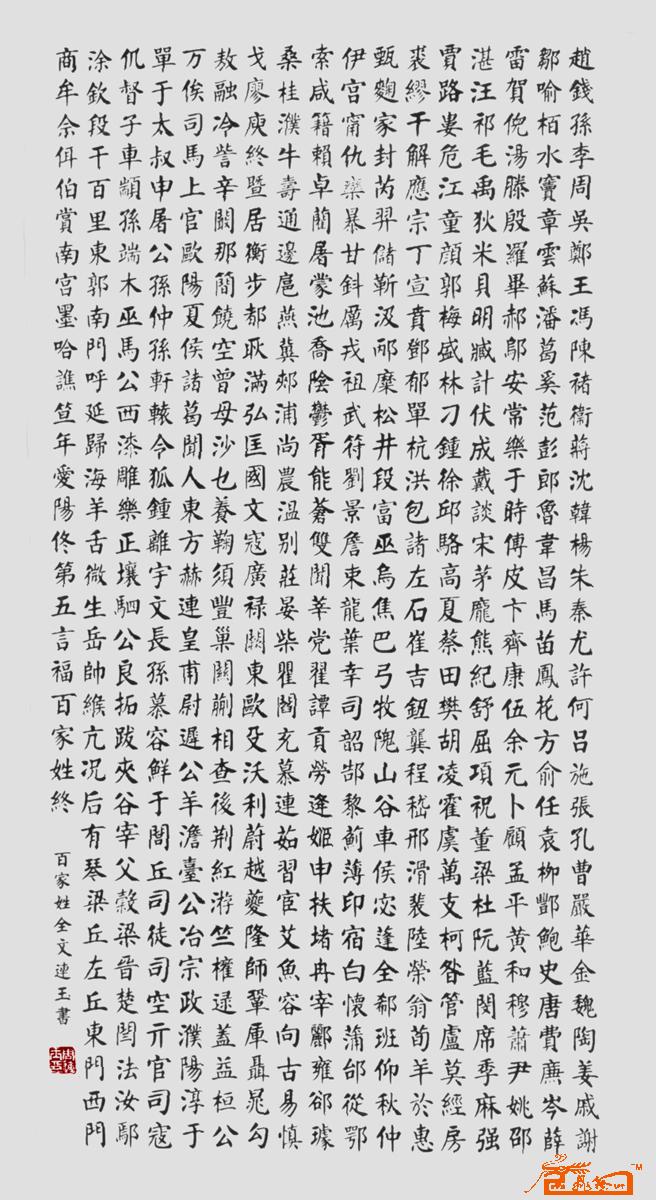 趙錢孫李周吳鄭王馮陳褚衛蔣沈韓楊朱秦尤許何呂施張孔曹嚴華金魏陶姜戚謝
鄒喻栢水竇章雲蘇潘葛奚范彭郎魯韋昌馬苗鳳花方俞任袁柳酆鮑史唐費廉岑薛
雷賀倪湯滕殷羅畢郝鄔安常樂于時傅皮卞齊康伍余元卜顧孟平黃和穆蕭尹姚邵
湛汪祁毛禹狄米貝明臧計伏成戴談宋茅龐熊紀舒屈項祝董梁杜阮藍閔席季麻强
賈路婁危江童顏郭梅盛林刁鍾徐邱駱高夏蔡田樊胡凌霍虞萬支柯昝管盧莫經房
裘繆干解應宗丁宣賁鄧郁單杭洪包諸左石崔吉鈕龔程嵇邢滑裴陸榮翁荀羊於惠
甄麴家封芮羿儲靳汲邴糜松井段富巫烏焦巴弓牧隗山谷車侯宓蓬全郗班仰秋仲
伊宫甯仇欒暴甘鈄厲戎祖武符劉景詹束龍葉幸司韶郜黎薊薄印宿白懷蒲邰從鄂
索咸籍賴卓藺屠蒙池喬陰鬱胥能蒼雙聞莘党翟譚貢勞逄姬申扶堵冉宰酈雍郤璩
桑桂濮牛壽通邊扈燕冀郟浦尚農温别莊晏柴瞿閻充慕連茹習宦艾魚容向古易慎
戈廖庾終暨居衡步都耿滿弘匡國文寇廣禄闕東歐殳沃利蔚越夔隆師鞏厙聶晁勾
敖融冷訾辛闞那簡饒空曾毋沙乜養鞠須豐巢關蒯相查後荆紅游竺權逯蓋益桓公
万俟司馬上官歐陽夏侯諸葛聞人東方赫連皇甫尉遲公羊澹臺公冶宗政濮陽淳于
單于太叔申屠公孫仲孫軒轅令狐鍾離宇文長孫慕容鮮于閭丘司徒司空亓官司寇
仉督子車顓孫端木巫馬公西漆雕樂正壤駟公良拓跋夾谷宰父穀梁晋楚閆法汝鄢
涂欽段干百里東郭南門呼延歸海羊舌微生岳帥緱亢况后有琴梁丘左丘東門西門
商牟佘佴伯賞南宫墨哈譙笪年愛陽佟第五言福百家姓終
百家姓全文連玉書